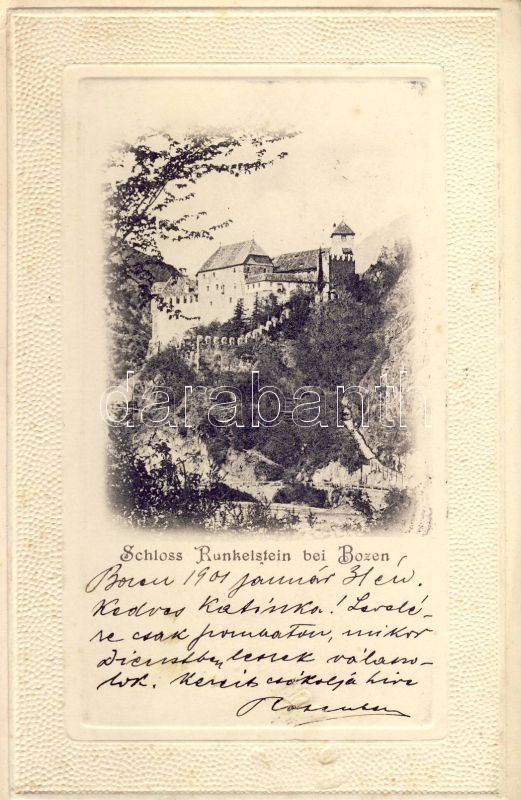 darabanth
Schloss Runkelstein bei Bozen
Bozen 1901 január 31én.
Kedves Katinka! Levelé-
re csak szombaton, mikor
Dienstben leszek válaszo-
lok. Kezeit csókolja híve